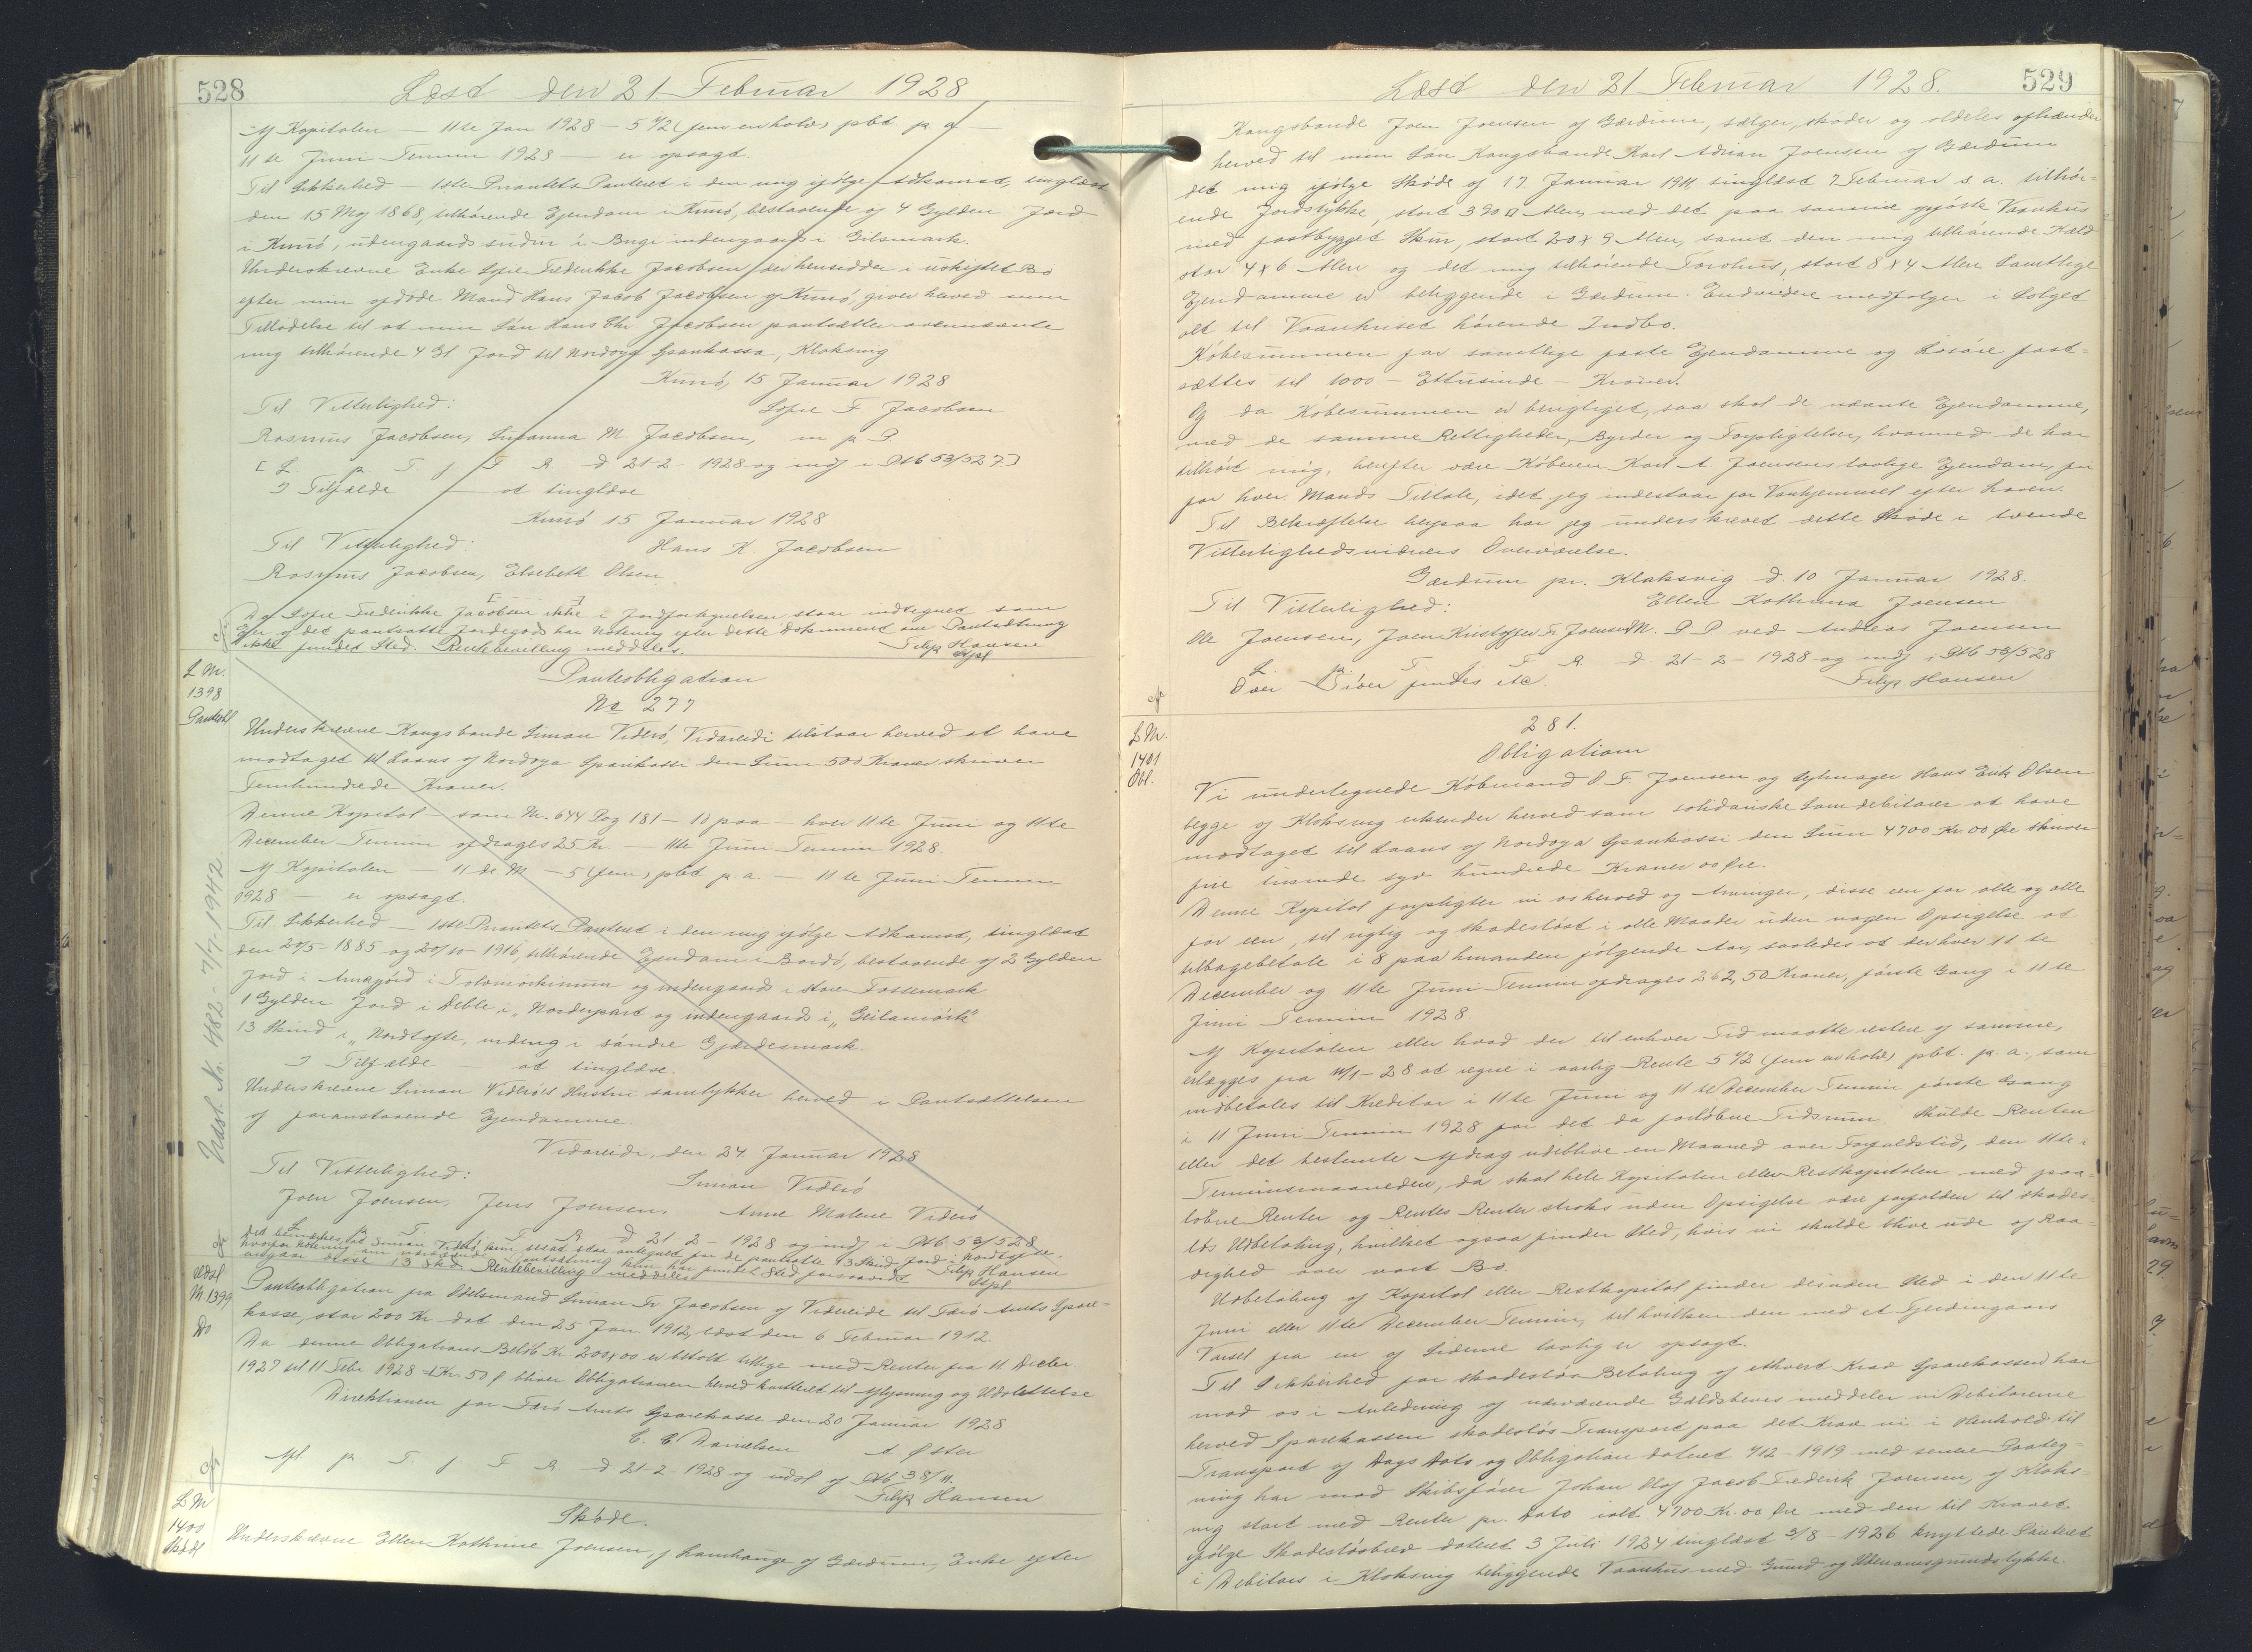 528
Læst den 21 Februar 1928
Af Kapitalen — 11te Jan 1928 — 5 1/2 (fem en halv) pct p. a —
11te Juni Termin 1928 — er opsagt.
Til Sikkerhed — 1ste Prioritets Panteret i den mig ifølge Adkomst, tinglæst
den 15 Maj 1868, tilhørende Ejendom i Kunó, bestaaende af 4 Gylden Jord
i Kunó, udengaards sudur i Bugi indengaards i Gilsmark.
Underskrevne Enke Sofie Frederikke Jacobsen der hensidder i uskiftet Bo
efter min afdøde Mand Hans Jacob Jacobsen af Kunó, giver herved min
Tilladelse til at min Søn Hans Chr Jacobsen pantsætter ovennævnte
mig tilhørende 4 Gl Jord til Nordoya Sparikassa, Klaksvig
Kunó, 15 Januar 1928
Til Vitterlighed: Sofie F Jacobsen
Rasmus Jacobsen, Susanna M. Jacobsen, m p P.
[L p T f F R d 21-2-1928 og indf i Ptb 53/527]
I Tilfælde — at tinglæse
Kunó 15 Januar 1928
Til Vitterlighed: Hans K. Jacobsen
Rasmus Jacobsen, Elsebeth Olsen
Da Sofie Frederikke Jacobsen ikke i Jordfortegnelsen staar indtegnet som
Ejer af det pantsatte Jordegods har Notering efter dette Dokument om Pantsætning
ikke fundet Sted. Rentebevilling meddeles. Filip Hansen
L M.
1398
Panteobl
Panteobligation
No 277
Underskrevne Kongsbonde Simon Viderö, Vidareidi tilstaar herved at have
modtaget til Laans af Nordoya Sparikassi den Sum 500 Kroner skriver
Femhundrede Kroner.
Denne Kapital — som M. 644 Pag 181 — 10 paa — hver 11te Juni og 11te
December Termin afdrages 25 Kr. — 11te Juni Termin 1928.
Af Kapitalen — 11 de M — 5 (fem) pct p a. — 11te Juni Termin
1928 — er opsagt.
Til Sikkerhed — 1ste Prioritets Panteret i den mig ifølge Adkomst, tinglæst
den 20/5-1885 og 20/10-1916, tilhørende Ejendom i Bordö, bestaaende af 2 Gylden
Jord i Arnafjord i og indengaards i Store Fossemark
1 Gylden Jord i Deble i „Norderpart og indengaards i „Geilamörk"
13 Skind i „Nordtofte, indeng i söndre Gjærdesmark.
I Tilfælde — at tinglæse.
Underskrevne Simon Viderö's Hustru samtykker herved i Pantsættelsen
af foranstaaende Ejendomme.
Vidareidi, den 24 Januar 1928
Til Vitterlighed: Simon Viderö
Joen Joensen, Jens Joensen. Anne Malene Viderö
L p T f F R d 21-2-1928 og indf i Ptb 53/528
Det bemærkes, at Simon Viderö kun ses at staa antegnet for de pantsatte 13 Skind Jord i Nordtofte,
hvorfor Notering om nærværende Pantsætning kun har fundet Sted forsaavidt
angaar disse 13 Skd. Rentebevilling meddeles Filip Hansen
Udsl. No. 482 - 7/7-1942
Udsl
M. 1399
Do
Panteobligation fra Odelsmand Simon Fr Jacobsen af Videreide til Færö Amts Spare-
kasse, stor 200 Kr dat den 25 Jan 1912, læst den 6 Februar 1912.
Da denne Obligations Beløb Kr. 200,00 er betalt tillige med Renter fra 11 Decbr
1927 til 11 Febr 1928 1 Kr. 50 ø bliver Obligationen herved kvitteret til Aflysning og Udslettelse
Direktionen for Færö Amts Sparekasse den 20 Januar 1928
C. C. Danielsen A Øster
Afl p T f F R d 21-2-1928 og udsl af Ptb 38/11.
Filip Hansen
L M
1400
Skøde
Skøde.
Underskrevne Ellen Kathrine Joensen, f Lamhauge af Gærdum, Enke efter
529
Læst den 21 Februar 1928.
Kongsbonde Joen Joensen af Gærdum, sælger, skøder og aldeles afhænder
herved til min Søn Kongsbonde Karl Adrian Joensen af Gærdum
det mig ifølge Skøde af 17 Januar 1911, tinglæst 7 Februar s. a. tilhør-
ende Jordstykke, stort 390 □ Alen, med det paa samme opførte Vaanhus
med fastbygget Skur, stort 20 x 9 Alen, samt den mig tilhørende Kæld
stor 4 x 6 Alen og det mig tilhørende Torvhus, stort 8 x 4 Alen Samtlige
Ejendomme er beliggende i Gærdum. Endvidere medfølger i Salget
alt til Vaanhuset hørende Indbo.
Købesummen for samtlige faste Ejendomme og Løsøre fast-
sættes til 1000 — Ettusinde — Kroner.
Og da Købesummen er berigtiget, saa skal de nævnte Ejendomme,
med de samme Rettigheder, Byrder og Forpligtelser, hvormed de har
tilhørt mig, herefter være Køberen Karl A. Joensens lovlige Ejendom, fri
for hver Mands Tiltale, idet jeg indestaar for Vanhjemmel efter Loven.
Til Bekræftelse herpaa har jeg underskrevet dette Skøde i tvende
Vitterlighedsvidners Overværelse.
Gærdum pr. Klaksvig d. 10 Januar 1928.
Til Vitterlighed: Ellen Kathrina Joensen
Ole Joensen, Joen Kristoffer Fr. Joensen M. P. P ved Andreas Joensen
L p T f F R d 21-2-1928 og indf i Ptb 53/528
Over Diverr findes etc. Filip Hansen
L M.
1401
Obl.
281.
Obligation
Vi undertegnede Købmand O F. Joensen og Sejlmager Hans Erik Olsen
begge af Klaksvig erkender herved som solidariske Samdebitorer at have
modtaget til Laans af Nordoya Sparikassi den Sum 4700 Kr. 00 Øre skriver
fire tusinde syv hundrede Kroner 00 Øre.
Denne Kapital forpligter vi os herved og Arvinger, disse een for alle og alle
for een, til rigtig og skadesløst i alle Maader uden nogen Opsigelse at
tilbagebetale i 8 paa hinanden følgende Aar, saaledes at der hver 11te
December og 11te Juni Termin afdrages 262,50 Kroner, første Gang i 11te
Juni Termin 1928.
Af Kapitalen eller hvad der til enhver Tid maatte restere af samme,
erlægges fra 11/1-28 at regne i aarlig Rente 5 1/2 (fem en halv) pct. p. a., som
indbetales til Kreditor i 11te Juni og 11te December Termin første Gang
i 11 Juni Termin 1928 for det da forløbne Tidsrum. Skulde Renten
eller det bestemte Afdrag udeblive en Maaned over Forfaldstid, den 11te i
Terminsmaaneden, da skal hele Kapitalen eller Restkapitalen med paa-
løbne Renter og Rentes Renter straks uden Opsigelse være forfalden til skades-
løs Udbetaling, hvilket ogsaa finder Sted, hvis vi skulde blive ude af Raa-
dighed over vort Bo.
Udbetaling af Kapital eller Restkapital finder desuden Sted i den 11te
Juni eller 11te December Termin, til hvilken den med et Fjerdingaars
Varsel fra en af Siderne lovlig er opsagt.
Til Sikkerhed for skadesløs Betaling af ethvert Krav Sparekassen har
mod os i Anledning af nærværende Gældsbevis meddeler vi Debitorerne
herved Sparekassen skadesløs Transport paa det Krav vi i Henhold til
Transport af Dags Dato og Obligation dateret 4/12-1919 med senere Paateg-
ning har mod Skibsfører Johan Olaf Jacob Frederik Joensen, af Klaks-
vig stort med Renter pr. Dato ialt 4700 Kr. 00 Øre med den til Kravet
ifølge Skadesløsbrev dateret 3 Juli 1924 tinglæst 3/8-1926 knyttede Panteret
i Debitors i Klaksvig beliggende Vaanhus med Grund og Udenomsgrundstykke.